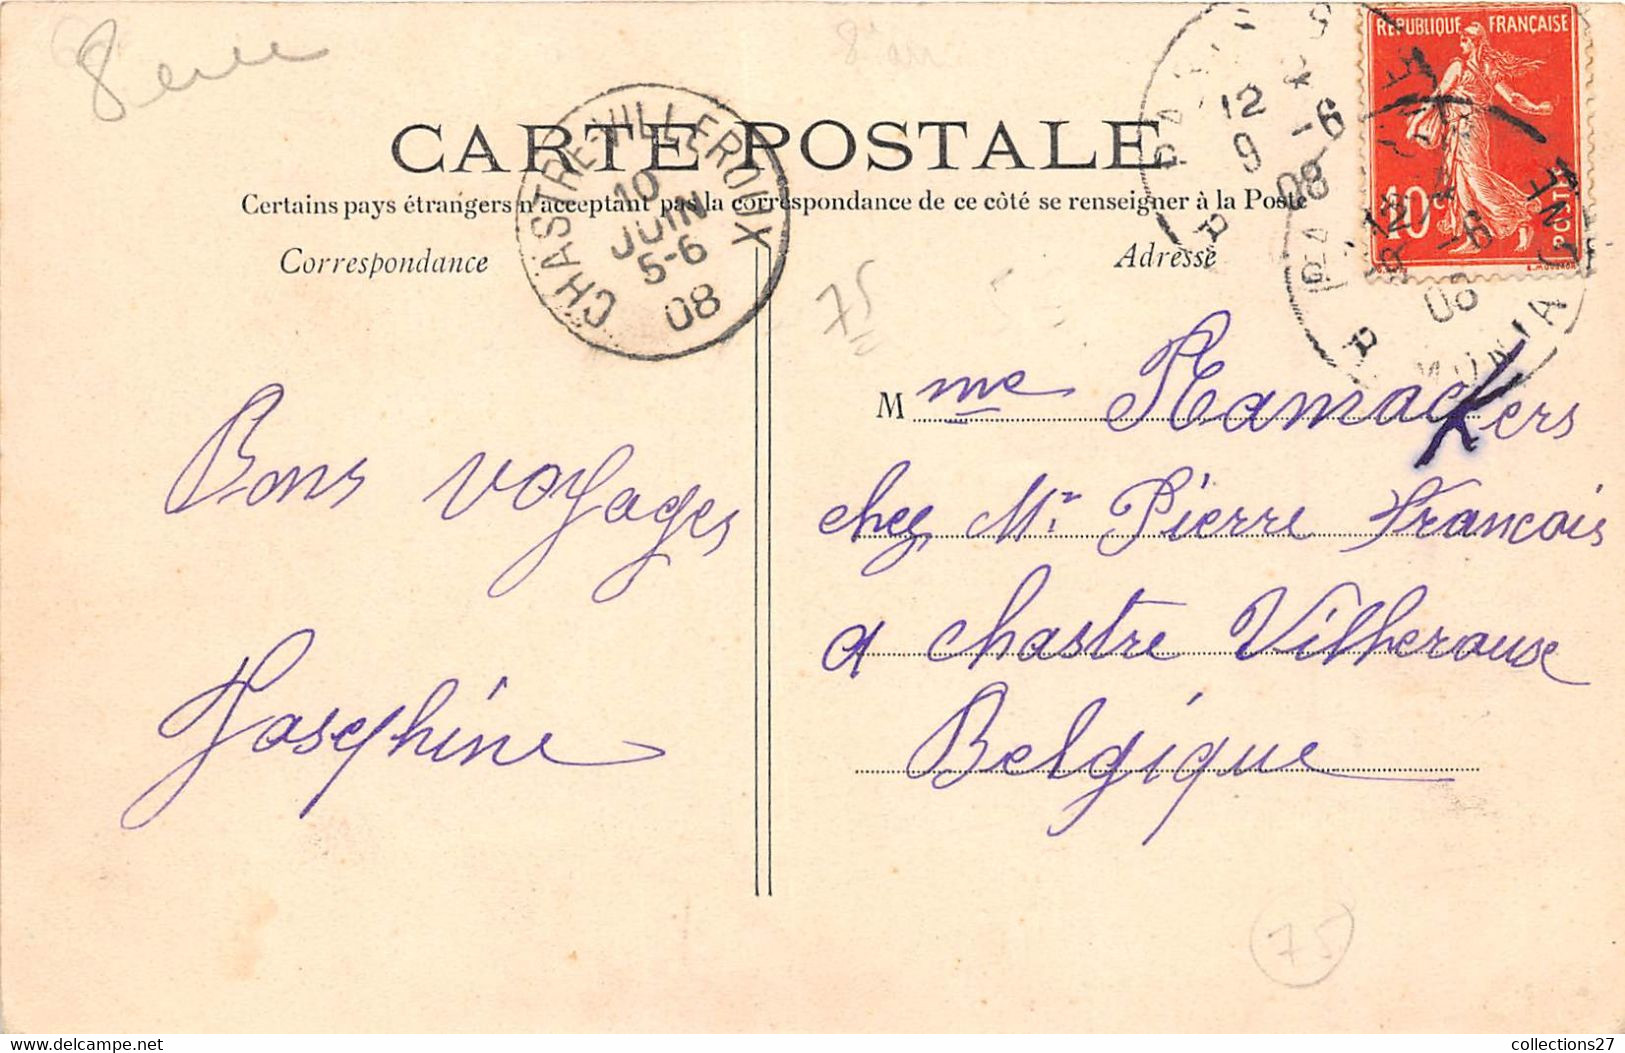 8eme
8e arr
RÉPUBLIQUE FRANÇAISE
10c
POSTES
CHASTRE-VILLEROUX
10
JUIN
5-6
08
12
9 -6
08
12
9 -6
08
CARTE POSTALE
Certains pays étrangers n'acceptant pas la correspondance de ce côté se renseigner à la Poste
Correspondance
Adresse
75
Bons voyages
Josephine
Mme Ramackers
chez Mr Pierre Francois
a Chastre Villerouse
Belgique
75
delcampe.net
collections27